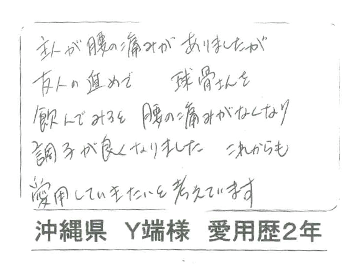 主人が腰の痛みがありましたが
友人の進めで 球骨さんを
飲んでみると腰の痛みがなくなり
調子が良くなりました これからも
愛用していきたいと考えています
沖縄県 Y端様 愛用歴2年